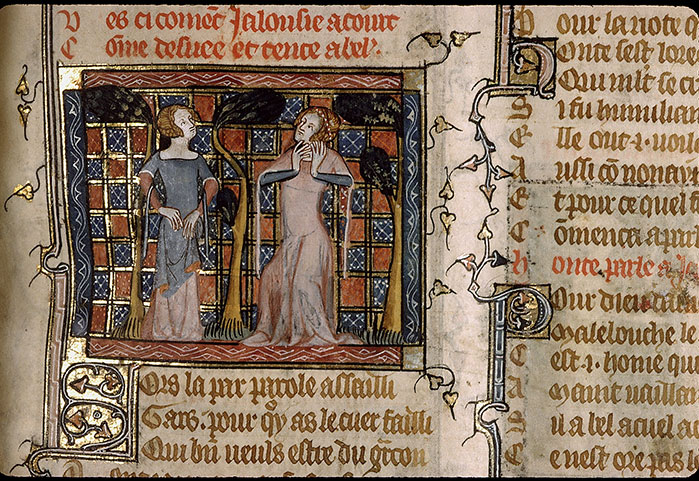 Ves ci comēt Jalousie acourt
Cōme desuee et tence a bel
Lors la par parole assailli
Gars. pour qͥ as le cuer failli
Qui bn̄ ueuls estre du garcon
our la note
onte sest
Qui mlt se
i fu humilia
lle out .i. uoil
ussi cō nonnai
t pour ce quel
omenca a parl
honte parle a
Our dieu da
Malebouche le
est .i. home qu
Maint uaillan
il a bel acuel
e nest ore pas